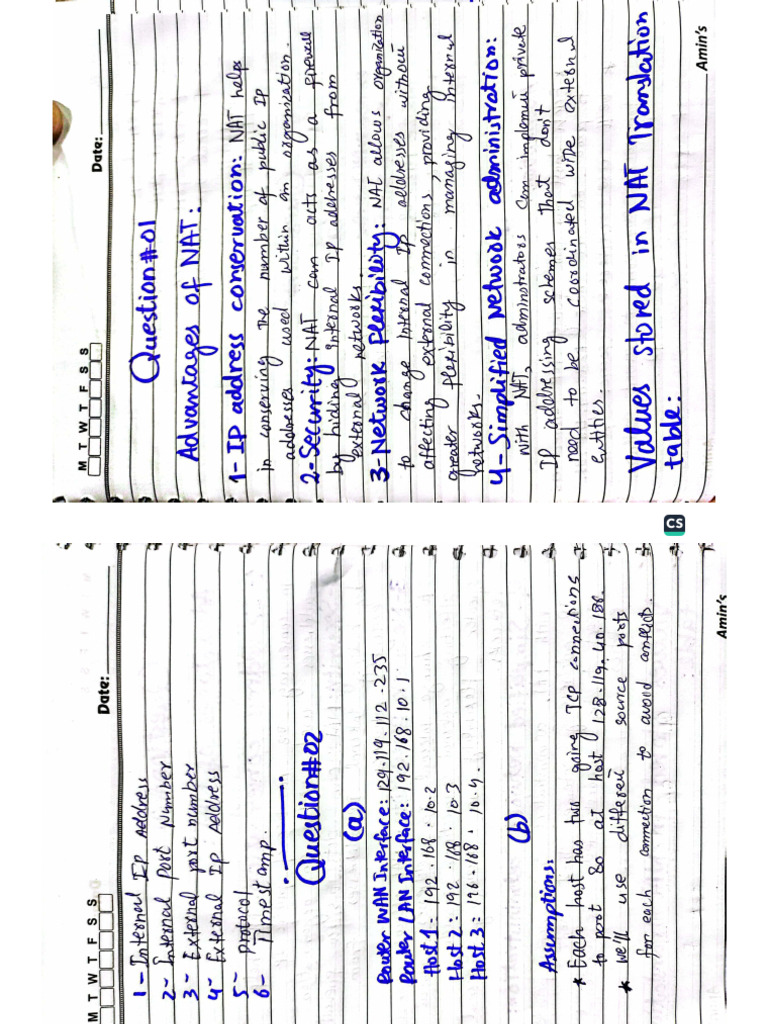 M T W T F S S
Date:
Question#01
Advantages of NAT:
1-IP address conservation: NAT helps
in conserving the number of public IP
addresses used within an organization.
2-Security: NAT can acts as a firewall
by hiding internal IP addresses from
external networks.
3-Network flexibility: NAT allows organization
to change internal IP addresses without
affecting external connections, providing
greater flexibility in managing internal
networks.
4-Simplified Network administration:
with NAT, adminstrators can implement private
IP addressing schemes that don't
need to be coordinated with external
entities.
Values stored in NAT Translation
table:
Amin's
CS
M T W T F S S
Date:
1- Internal IP Address
2- Internal Port Number
3- External port number
4- External IP Address
5- Protocol
6- Timestamp.
Question#02
(a)
Router WAN Interface: 129.119.112.235
Router LAN Interface: 192.168.10.1
Host 1: 192.168.10.2
Host 2: 192.168.10.3
Host 3: 196.168.10.4.
(b)
Assumptions:
* Each host has two going TCP connections
to port 80 at host 128.119.40.186.
* we'll use different source ports
for each connection to avoid conflicts.
Amin's